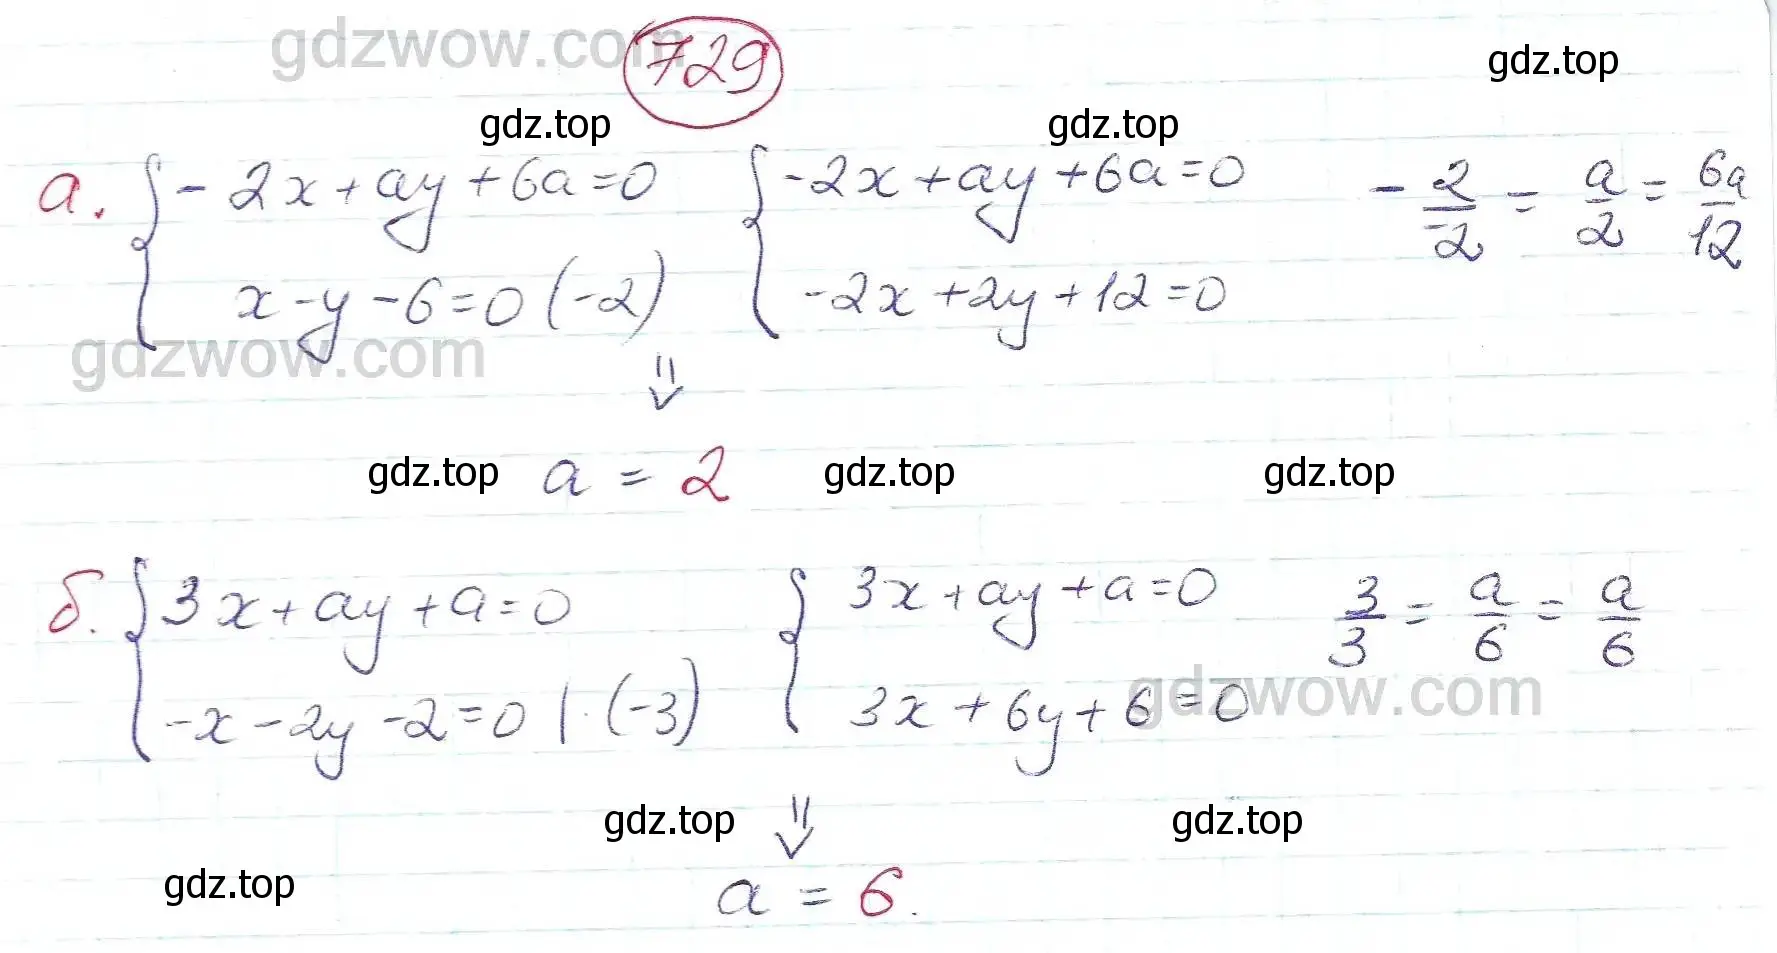 gdzwow.com 729 gdz.top
gdz.top gdz.top
а. { -2x + ay + 6a = 0 { -2x + ay + 6a = 0 - 2/-2 = a/2 = 6a/12
x - y - 6 = 0 (-2) -2x + 2y + 12 = 0
gdzwow.com
⇓
gdz.top a = 2 gdz.top gdz.top
б. { 3x + ay + a = 0 { 3x + ay + a = 0 3/3 = a/6 = a/6
-x - 2y - 2 = 0 | · (-3) 3x + 6y + 6 = 0 gdzwow.com
gdz.top ⇓ gdz.top
gdz.top a = 6.